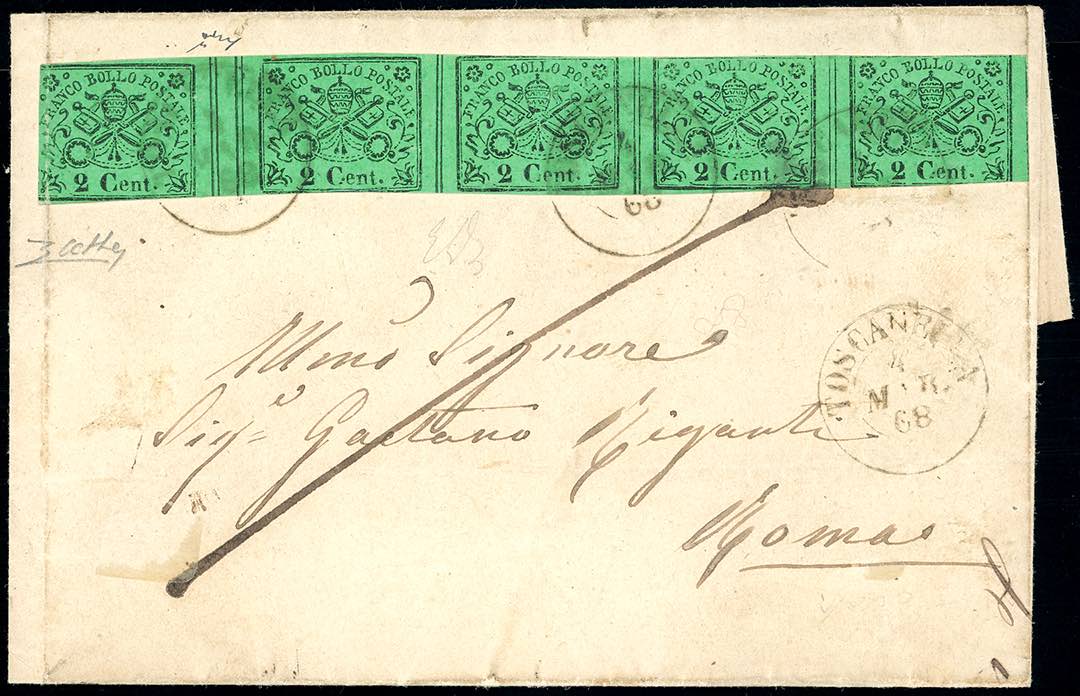 FRANCO BOLLO POSTALE FRANCO BOLLO POSTALE FRANCO BOLLO POSTALE FRANCO BOLLO POSTALE FRANCO BOLLO POSTALE
2 Cent. 2 Cent. 2 Cent. 2 Cent. 2 Cent.
68
Illmo Signore
Sig.e Gaetano Riganti
Roma
TOSCANELLA
4
MAR.
68